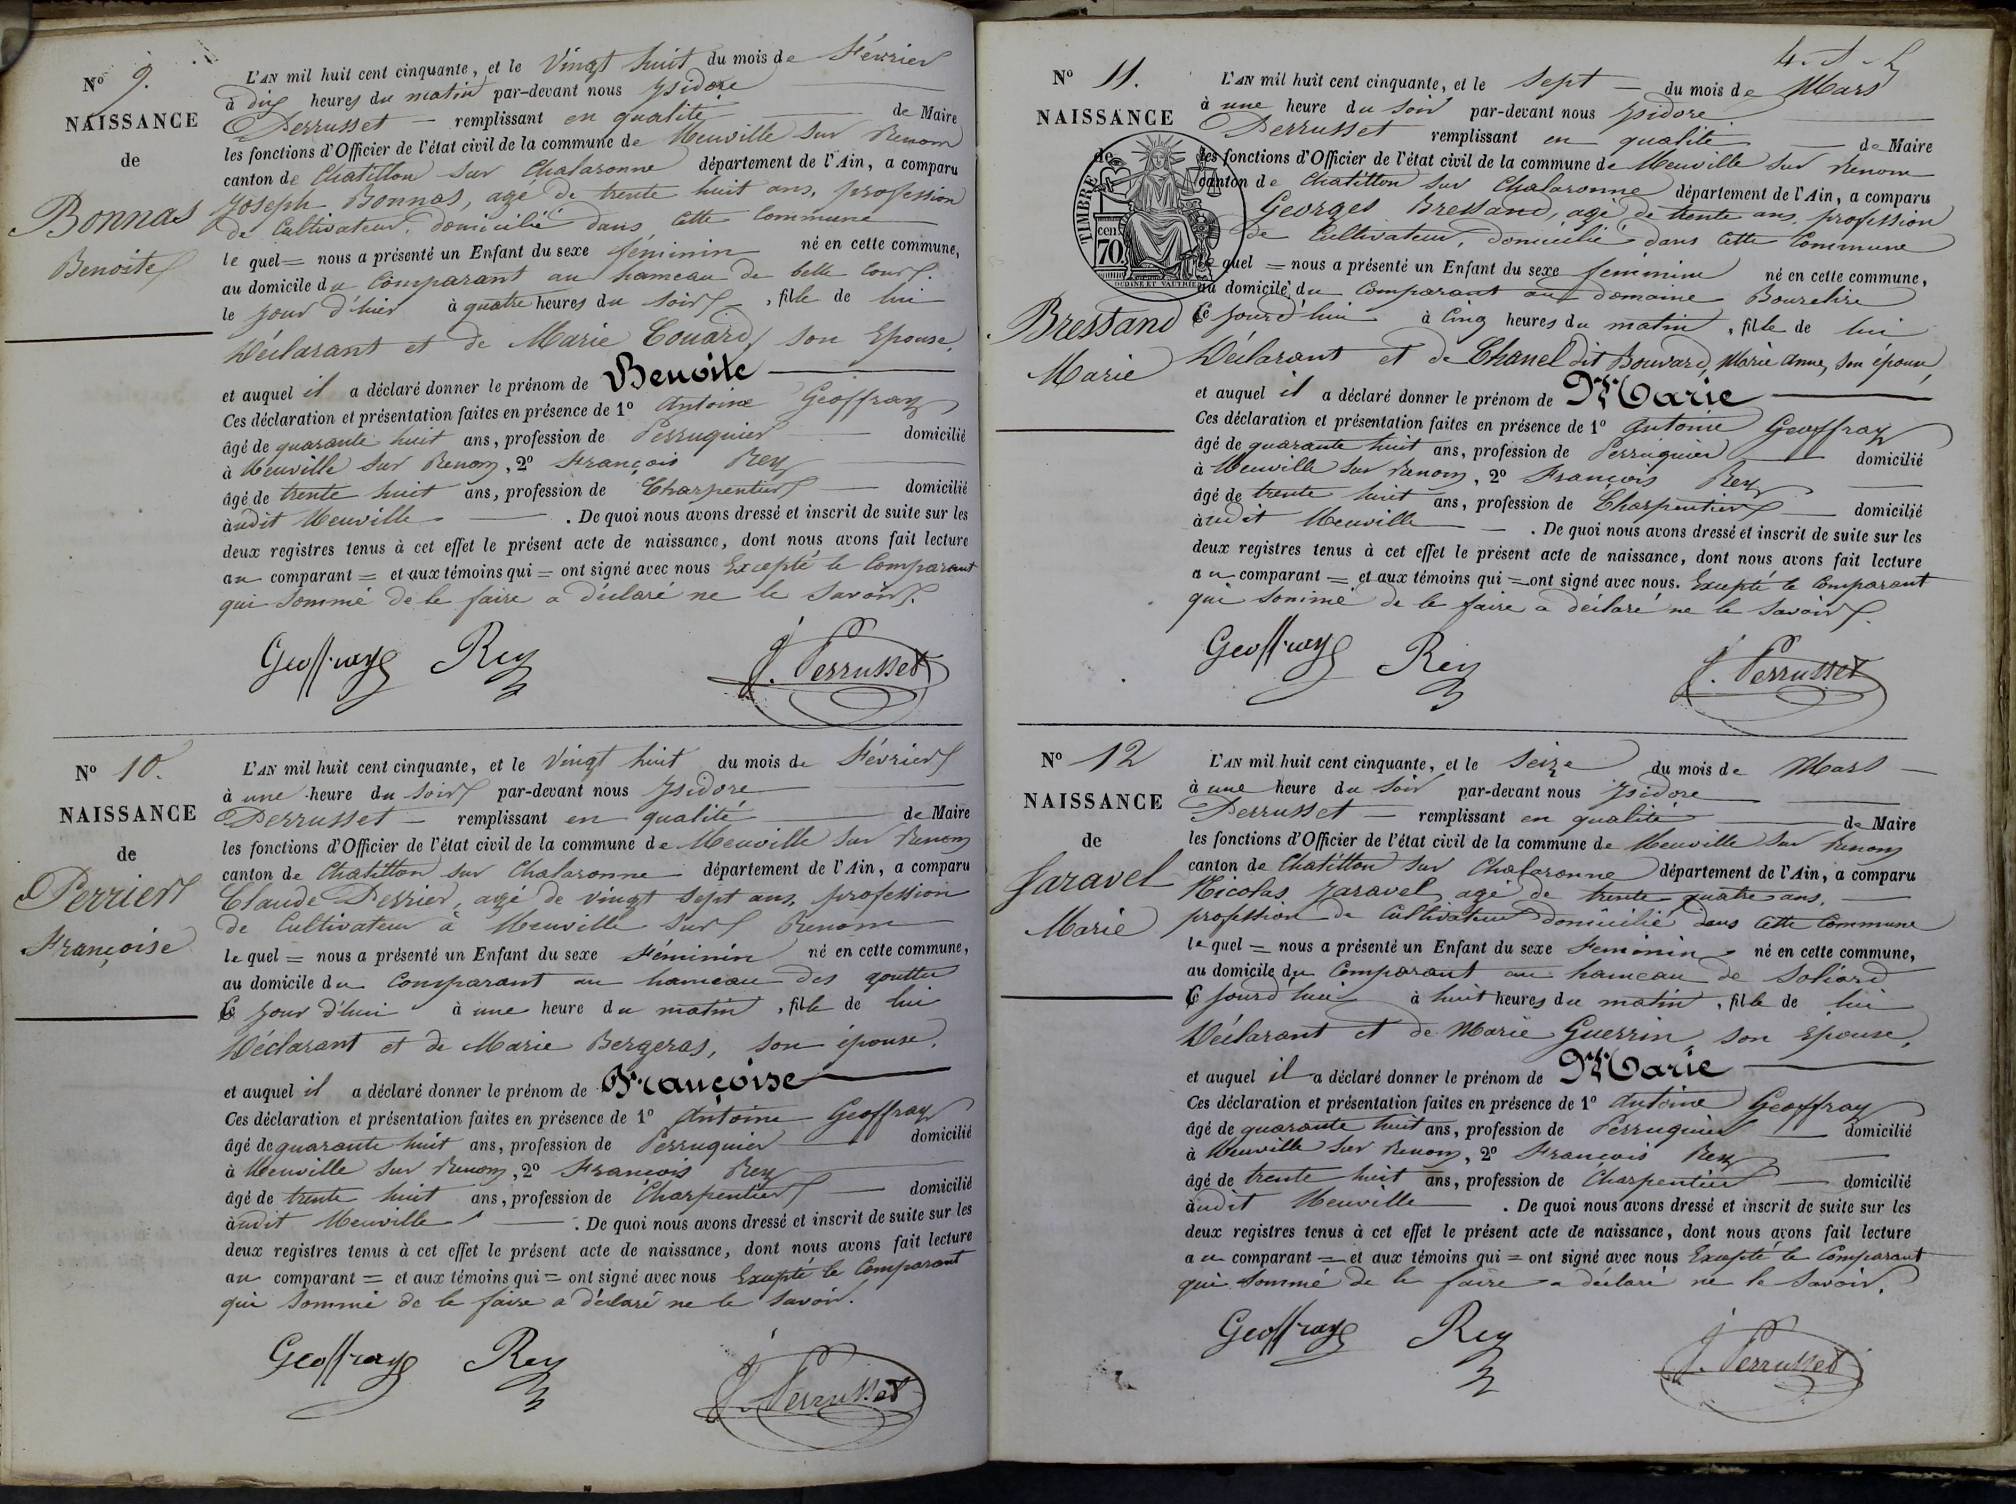 Nº 9.
NAISSANCE
de
Bonnas
Benoite
L'AN mil huit cent cinquante, et le Vingt huit du mois de Février
à dix heures du matin par-devant nous Ysidore
Perrusset remplissant en qualité de Maire
les fonctions d'Officier de l'état civil de la commune de Neuville sur Renom
canton de Chatillon sur Chalaronne département de l'Ain, a comparu
Joseph Bonnas, agé de trente huit ans, profession
de Cultivateur, domicilié dans cette Commune
le quel = nous a présenté un Enfant du sexe féminin né en cette commune,
au domicile du Comparant au hameau de belle Cour.
le jour d'hier à quatre heures du soir, fille de lui
Déclarant et de Marie Couard, son Epouse,
et auquel il a déclaré donner le prénom de Benoite
Ces déclaration et présentation faites en présence de 1º Antoine Geoffray
âgé de quarante huit ans, profession de Perruquier domicilié
à Neuville sur Renom, 2º François Rey
âgé de trente huit ans, profession de Charpentier domicilié
audit Neuville . De quoi nous avons dressé et inscrit de suite sur les
deux registres tenus à cet effet le présent acte de naissance, dont nous avons fait lecture
au comparant = et aux témoins qui = ont signé avec nous Excepté le Comparant
qui Sommé de le faire a déclaré ne le Savoir.
Geoffray Rey J. Perrusset
Nº 10.
NAISSANCE
de
Perrier
Françoise
L'AN mil huit cent cinquante, et le Vingt huit du mois de Février
à une heure du Soir par-devant nous Ysidore
Perrusset remplissant en qualité de Maire
les fonctions d'Officier de l'état civil de la commune de Neuville sur Renom
canton de Chatillon sur Chalaronne département de l'Ain, a comparu
Claude Perrier, agé de vingt sept ans, profession
de Cultivateur à Neuville sur Renom
le quel = nous a présenté un Enfant du sexe Féminin né en cette commune,
au domicile du Comparant au hameau des goutter
Ce jour d'hui à une heure du matin, fille de lui
Déclarant et de Marie Bergeras, son épouse,
et auquel il a déclaré donner le prénom de Françoise
Ces déclaration et présentation faites en présence de 1º Antoine Geoffray
âgé de quarante huit ans, profession de Perruquier domicilié
à Neuville sur Renom, 2º François Rey
âgé de trente huit ans, profession de Charpentier domicilié
audit Neuville . De quoi nous avons dressé et inscrit de suite sur les
deux registres tenus à cet effet le présent acte de naissance, dont nous avons fait lecture
au comparant = et aux témoins qui = ont signé avec nous Excepté le Comparant
qui Sommé de le faire a déclaré ne le Savoir.
Geoffray Rey J. Perrusset
Nº 11.
NAISSANCE
de
TIMBRE
70 cen
OUDINÉ ET VAUTHIER
Bressand
Marie
L'AN mil huit cent cinquante, et le Sept du mois de Mars
à une heure du Soir par-devant nous Ysidore
Perrusset remplissant en qualité de Maire
les fonctions d'Officier de l'état civil de la commune de Neuville sur Renom
canton de Chatillon sur Chalaronne département de l'Ain, a comparu
Georges Bressand, agé de trente ans, profession
de Cultivateur, domicilié dans cette Commune
le quel = nous a présenté un Enfant du sexe féminin né en cette commune,
au domicile du Comparant au domaine
Ce jourd'hui à Cinq heures du matin, fille de lui
Déclarant et de Chanel dit Bouvard, Marie Anne, Son épouse,
et auquel il a déclaré donner le prénom de Marie
Ces déclaration et présentation faites en présence de 1º Antoine Geoffray
âgé de quarante huit ans, profession de Perruquier domicilié
à Neuville sur Renom, 2º François Rey
âgé de trente huit ans, profession de Charpentier domicilié
audit Neuville . De quoi nous avons dressé et inscrit de suite sur les
deux registres tenus à cet effet le présent acte de naissance, dont nous avons fait lecture
au comparant = et aux témoins qui = ont signé avec nous. Excepté le Comparant
qui Sommé de le faire a déclaré ne le Savoir.
Geoffray Rey J. Perrusset
Nº 12
NAISSANCE
de
Jaravel
Marie
L'AN mil huit cent cinquante, et le Seize du mois de Mars
à une heure du Soir par-devant nous Ysidore
Perrusset remplissant en qualité de Maire
les fonctions d'Officier de l'état civil de la commune de Neuville sur Renom
canton de Chatillon sur Chalaronne département de l'Ain, a comparu
Nicolas Jaravel, agé de trente quatre ans,
profession de Cultivateur domicilié dans cette Commune
le quel = nous a présenté un Enfant du sexe Feminin né en cette commune,
au domicile du Comparant au hameau de Soliard
Ce jourd'hui à huit heures du matin, fille de lui
Déclarant et de Marie Guerrin, son Epouse,
et auquel il a déclaré donner le prénom de Marie
Ces déclaration et présentation faites en présence de 1º Antoine Geoffray
âgé de quarante huit ans, profession de Perruquier domicilié
à Neuville sur Renom, 2º François Rey
âgé de trente huit ans, profession de Charpentier domicilié
audit Neuville . De quoi nous avons dressé et inscrit de suite sur les
deux registres tenus à cet effet le présent acte de naissance, dont nous avons fait lecture
au comparant = et aux témoins qui = ont signé avec nous Excepté le Comparant
qui Sommé de le faire a déclaré ne le Savoir.
Geoffray Rey J. Perrusset